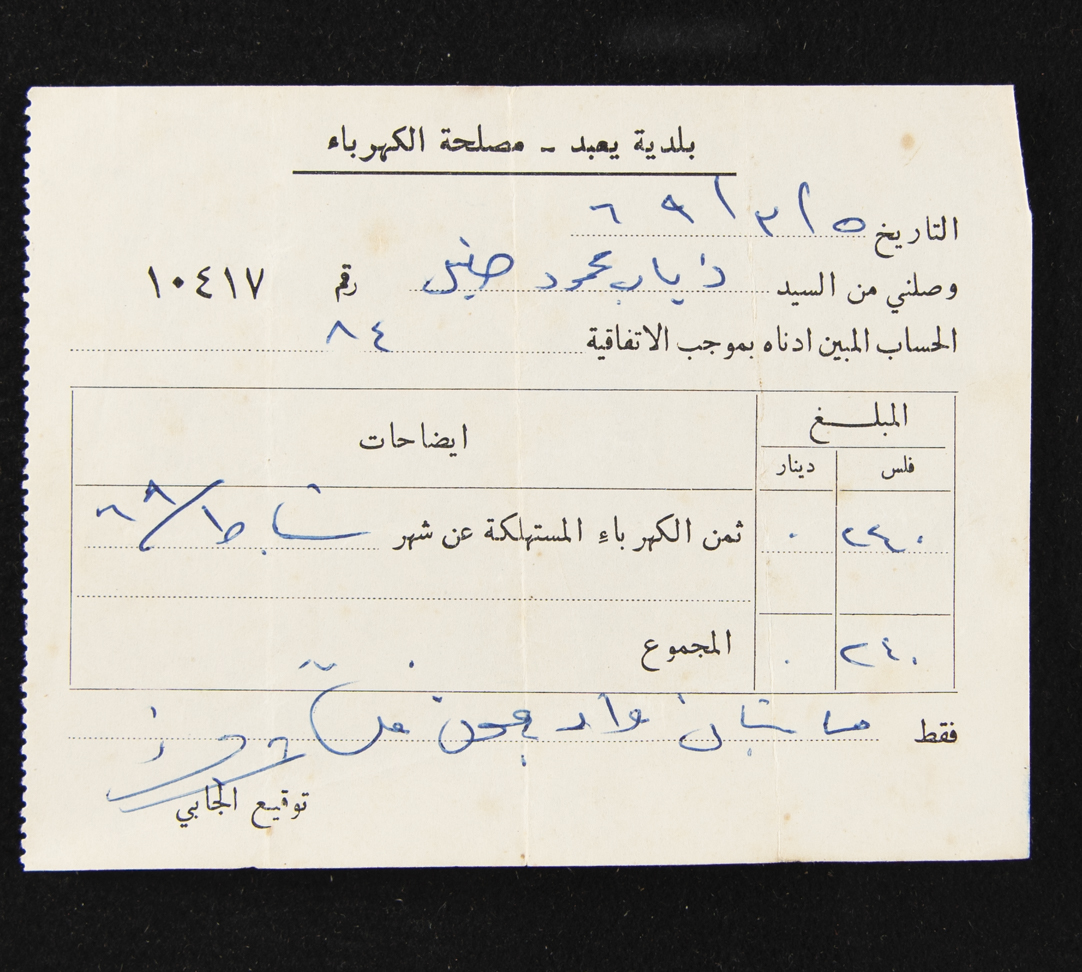 بلدية يعبد - مصلحة الكهرباء
التاريخ ٥/٣/٦٩
وصلني من السيد ذياب محمود رقم ١٠٤١٧
الحساب المبين ادناه بموجب الاتفاقية ٨٤
المبلغ ايضاحات
فلس دينار
٢٤٠ ٠ ثمن الكهرباء المستهلكة عن شهر شباط/٦٩
٢٤٠ ٠ المجموع
فقط مائتان واربعون فلس
توقيع الجابي